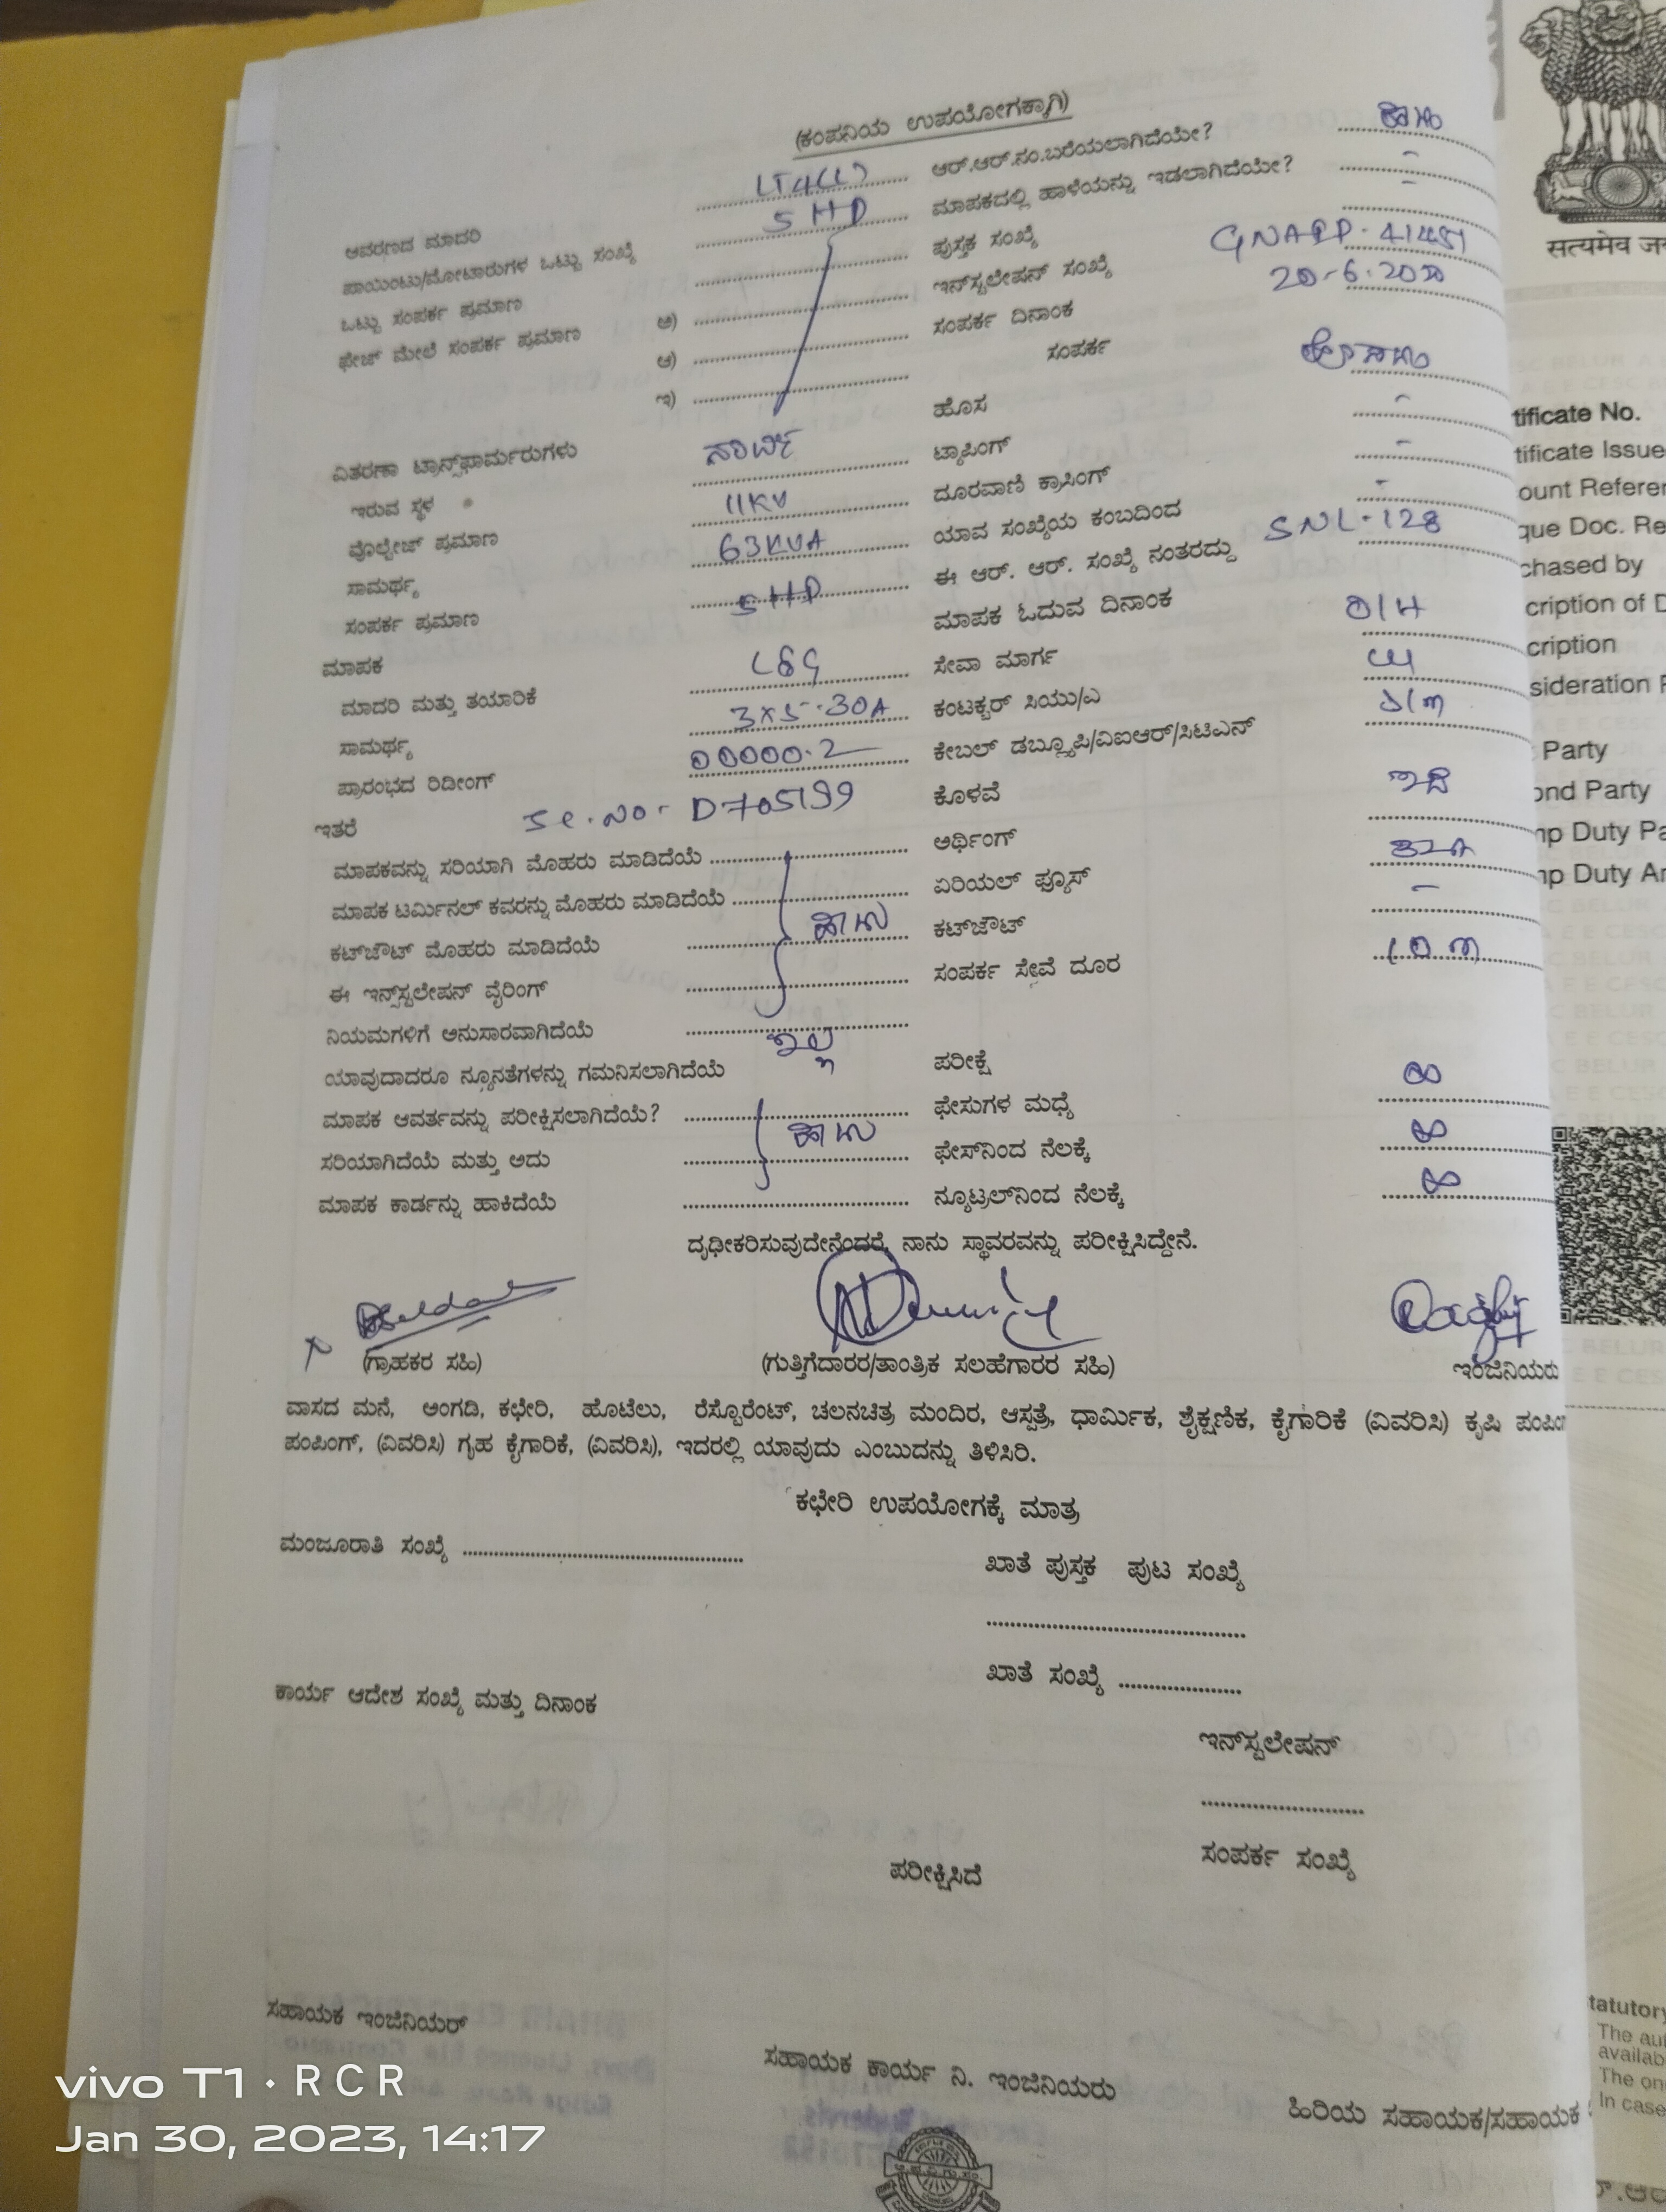 (ಕಂಪನಿಯ ಉಪಯೋಗಕ್ಕಾಗಿ)
ಆವರಣದ ಮಾದರಿ LT4(C) ಆರ್.ಆರ್.ನಂ.ಬರೆಯಲಾಗಿದೆಯೇ?
ಪಾಯಿಂಟು/ಮೋಟಾರುಗಳ ಒಟ್ಟು ಸಂಖ್ಯೆ 5 HP ಮಾಪಕದಲ್ಲಿ ಹಾಳೆಯನ್ನು ಇಡಲಾಗಿದೆಯೇ? -
ಒಟ್ಟು ಸಂಪರ್ಕ ಪ್ರಮಾಣ ಪುಸ್ತಕ ಸಂಖ್ಯೆ -
ಫೇಜ್ ಮೇಲೆ ಸಂಪರ್ಕ ಪ್ರಮಾಣ ಅ) ಇನ್‌ಸ್ಟಲೇಷನ್ ಸಂಖ್ಯೆ
ಆ) ಸಂಪರ್ಕ ದಿನಾಂಕ
ಇ) ಸಂಪರ್ಕ
ಹೊಸ
ವಿತರಣಾ ಟ್ರಾನ್ಸ್‌ಫಾರ್ಮರುಗಳು ಟ್ಯಾಪಿಂಗ್ -
ಇರುವ ಸ್ಥಳ ದೂರವಾಣಿ ಕ್ರಾಸಿಂಗ್ -
ವೊಲ್ಟೇಜ್ ಪ್ರಮಾಣ 11KV ಯಾವ ಸಂಖ್ಯೆಯ ಕಂಬದಿಂದ -
ಸಾಮರ್ಥ್ಯ 63KVA ಈ ಆರ್. ಆರ್. ಸಂಖ್ಯೆ ನಂತರದ್ದು SNL-128
ಸಂಪರ್ಕ ಪ್ರಮಾಣ 5HP ಮಾಪಕ ಓದುವ ದಿನಾಂಕ
ಮಾಪಕ ಸೇವಾ ಮಾರ್ಗ O/H
ಮಾದರಿ ಮತ್ತು ತಯಾರಿಕೆ L&G ಕಂಟಕ್ಟರ್ ಸಿಯು/ಎ
ಸಾಮರ್ಥ್ಯ 3x5-30A ಕೇಬಲ್ ಡಬ್ಲ್ಯೂಪಿ/ವಿಐಆರ್/ಸಿಟಿಎನ್
ಪ್ರಾರಂಭದ ರಿಡಿಂಗ್ 00000.2 ಕೊಳವೆ
ಇತರೆ Sl.No- D705199 ಅರ್ಥಿಂಗ್ ಇದೆ
ಮಾಪಕವನ್ನು ಸರಿಯಾಗಿ ಮೊಹರು ಮಾಡಿದೆಯೆ ಏರಿಯಲ್ ಫ್ಯೂಸ್ 32A
ಮಾಪಕ ಟರ್ಮಿನಲ್ ಕವರನ್ನು ಮೊಹರು ಮಾಡಿದೆಯೆ ಕಟ್‌ಔಟ್ -
ಕಟ್‌ಔಟ್ ಮೊಹರು ಮಾಡಿದೆಯೆ ಸಂಪರ್ಕ ಸೇವೆ ದೂರ 10 m
ಈ ಇನ್ಸ್‌ಸ್ಟಲೇಷನ್ ವೈರಿಂಗ್
ನಿಯಮಗಳಿಗೆ ಅನುಸಾರವಾಗಿದೆಯೆ
ಯಾವುದಾದರೂ ನ್ಯೂನತೆಗಳನ್ನು ಗಮನಿಸಲಾಗಿದೆಯೆ ಇಲ್ಲ ಪರೀಕ್ಷೆ
ಮಾಪಕ ಆವರ್ತವನ್ನು ಪರೀಕ್ಷಿಸಲಾಗಿದೆಯೆ? ಫೇಸುಗಳ ಮಧ್ಯೆ ∞
ಸರಿಯಾಗಿದೆಯೆ ಮತ್ತು ಅದು ಫೇಸ್‌ನಿಂದ ನೆಲಕ್ಕೆ ∞
ಮಾಪಕ ಕಾರ್ಡನ್ನು ಹಾಕಿದೆಯೆ ನ್ಯೂಟ್ರಲ್‌ನಿಂದ ನೆಲಕ್ಕೆ ∞
ದೃಢೀಕರಿಸುವುದೇನೆಂದರೆ, ನಾನು ಸ್ಥಾವರವನ್ನು ಪರೀಕ್ಷಿಸಿದ್ದೇನೆ.
(ಗ್ರಾಹಕರ ಸಹಿ) (ಗುತ್ತಿಗೆದಾರರ/ತಾಂತ್ರಿಕ ಸಲಹೆಗಾರರ ಸಹಿ) ಇಂಜಿನಿಯರು
ವಾಸದ ಮನೆ, ಅಂಗಡಿ, ಕಛೇರಿ, ಹೊಟೆಲು, ರೆಸ್ಟೊರೆಂಟ್, ಚಲನಚಿತ್ರ ಮಂದಿರ, ಆಸ್ಪತ್ರೆ, ಧಾರ್ಮಿಕ, ಶೈಕ್ಷಣಿಕ, ಕೈಗಾರಿಕೆ (ವಿವರಿಸಿ) ಕೃಷಿ
ಪಂಪಿಂಗ್, (ವಿವರಿಸಿ) ಗೃಹ ಕೈಗಾರಿಕೆ, (ವಿವರಿಸಿ), ಇದರಲ್ಲಿ ಯಾವುದು ಎಂಬುದನ್ನು ತಿಳಿಸಿರಿ.
ಕಛೇರಿ ಉಪಯೋಗಕ್ಕೆ ಮಾತ್ರ
ಮಂಜೂರಾತಿ ಸಂಖ್ಯೆ ಖಾತೆ ಪುಸ್ತಕ ಪುಟ ಸಂಖ್ಯೆ
ಖಾತೆ ಸಂಖ್ಯೆ
ಕಾರ್ಯ ಆದೇಶ ಸಂಖ್ಯೆ ಮತ್ತು ದಿನಾಂಕ
ಇನ್‌ಸ್ಟಲೇಷನ್
ಪರೀಕ್ಷಿಸಿದೆ ಸಂಪರ್ಕ ಸಂಖ್ಯೆ
ಸಹಾಯಕ ಇಂಜಿನಿಯರ್
ಸಹಾಯಕ ಕಾರ್ಯ ನಿ. ಇಂಜಿನಿಯರು
ಹಿರಿಯ ಸಹಾಯಕ/ಸಹಾಯಕ
सत्यमेव
tificate No.
tificate Issue
ount Referen
que Doc. Re
chased by
cription of D
cription
sideration
Party
ond Party
mp Duty Pa
mp Duty A
tatutory
The au
availab
The on
In case
vivo T1 · RCR
Jan 30, 2023, 14:17